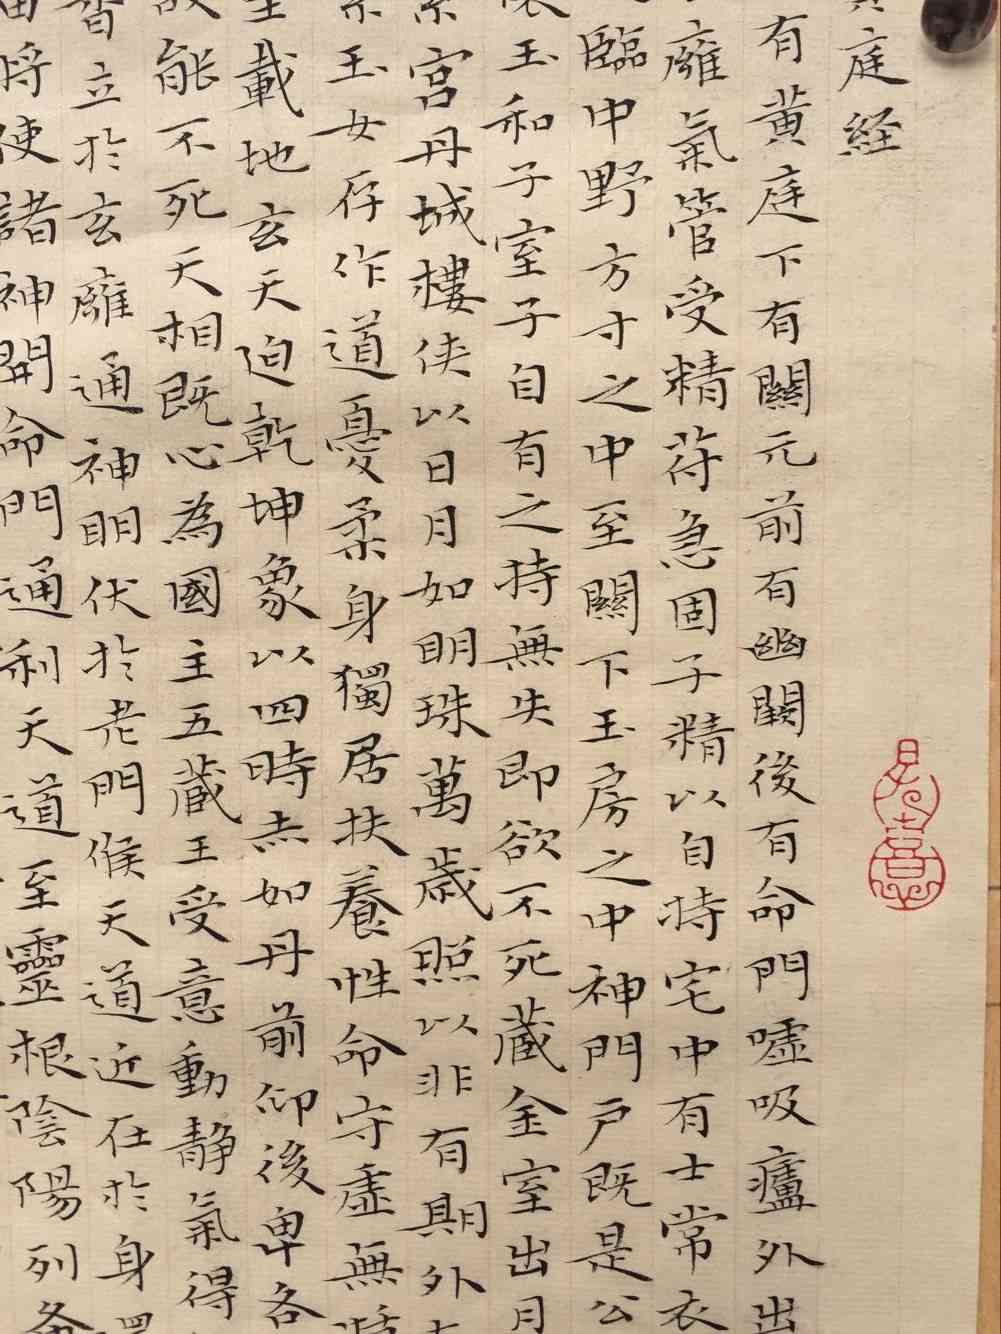 庭経
有黄庭下有關元前有幽闕後有命門噓吸廬外出
廱氣管受精苻急固子精以自持宅中有士常衣
臨中野方寸之中至關下玉房之中神門戶既是公
玉和子室子自有之持無失即欲不死藏金室出月
宮丹城樓俠以日月如明珠萬歲照以非有期外
玉女存作道憂柔身獨居扶養性命守虛無
載地玄天迫乾坤象以四時赤如丹前仰後卑各
能不死天相既心為國主五藏王受意動静氣得
立於玄廱通神明伏於老門候天道近在於身
将使諸神開命門通利天道至靈根陰陽列